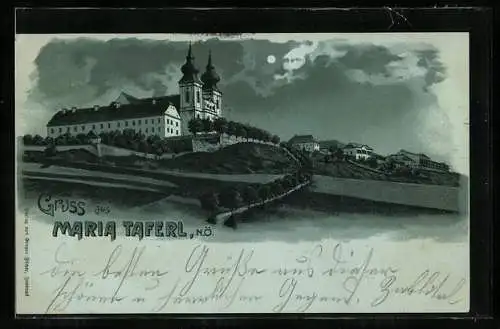 Gruss aus
MARIA TAFERL, N.Ö.
die besten Grüße aus dieser
schönen u herrlichen Gegend.